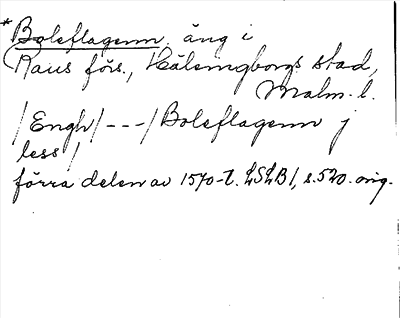 *Boleflagenn, äng i
Raus förs., Hälsingborgs stad,
Malm. l.
/Engh/ - - - /Boleflagenn j
less/
förra delen av 1570-t. LSLB 1, s. 520. orig.